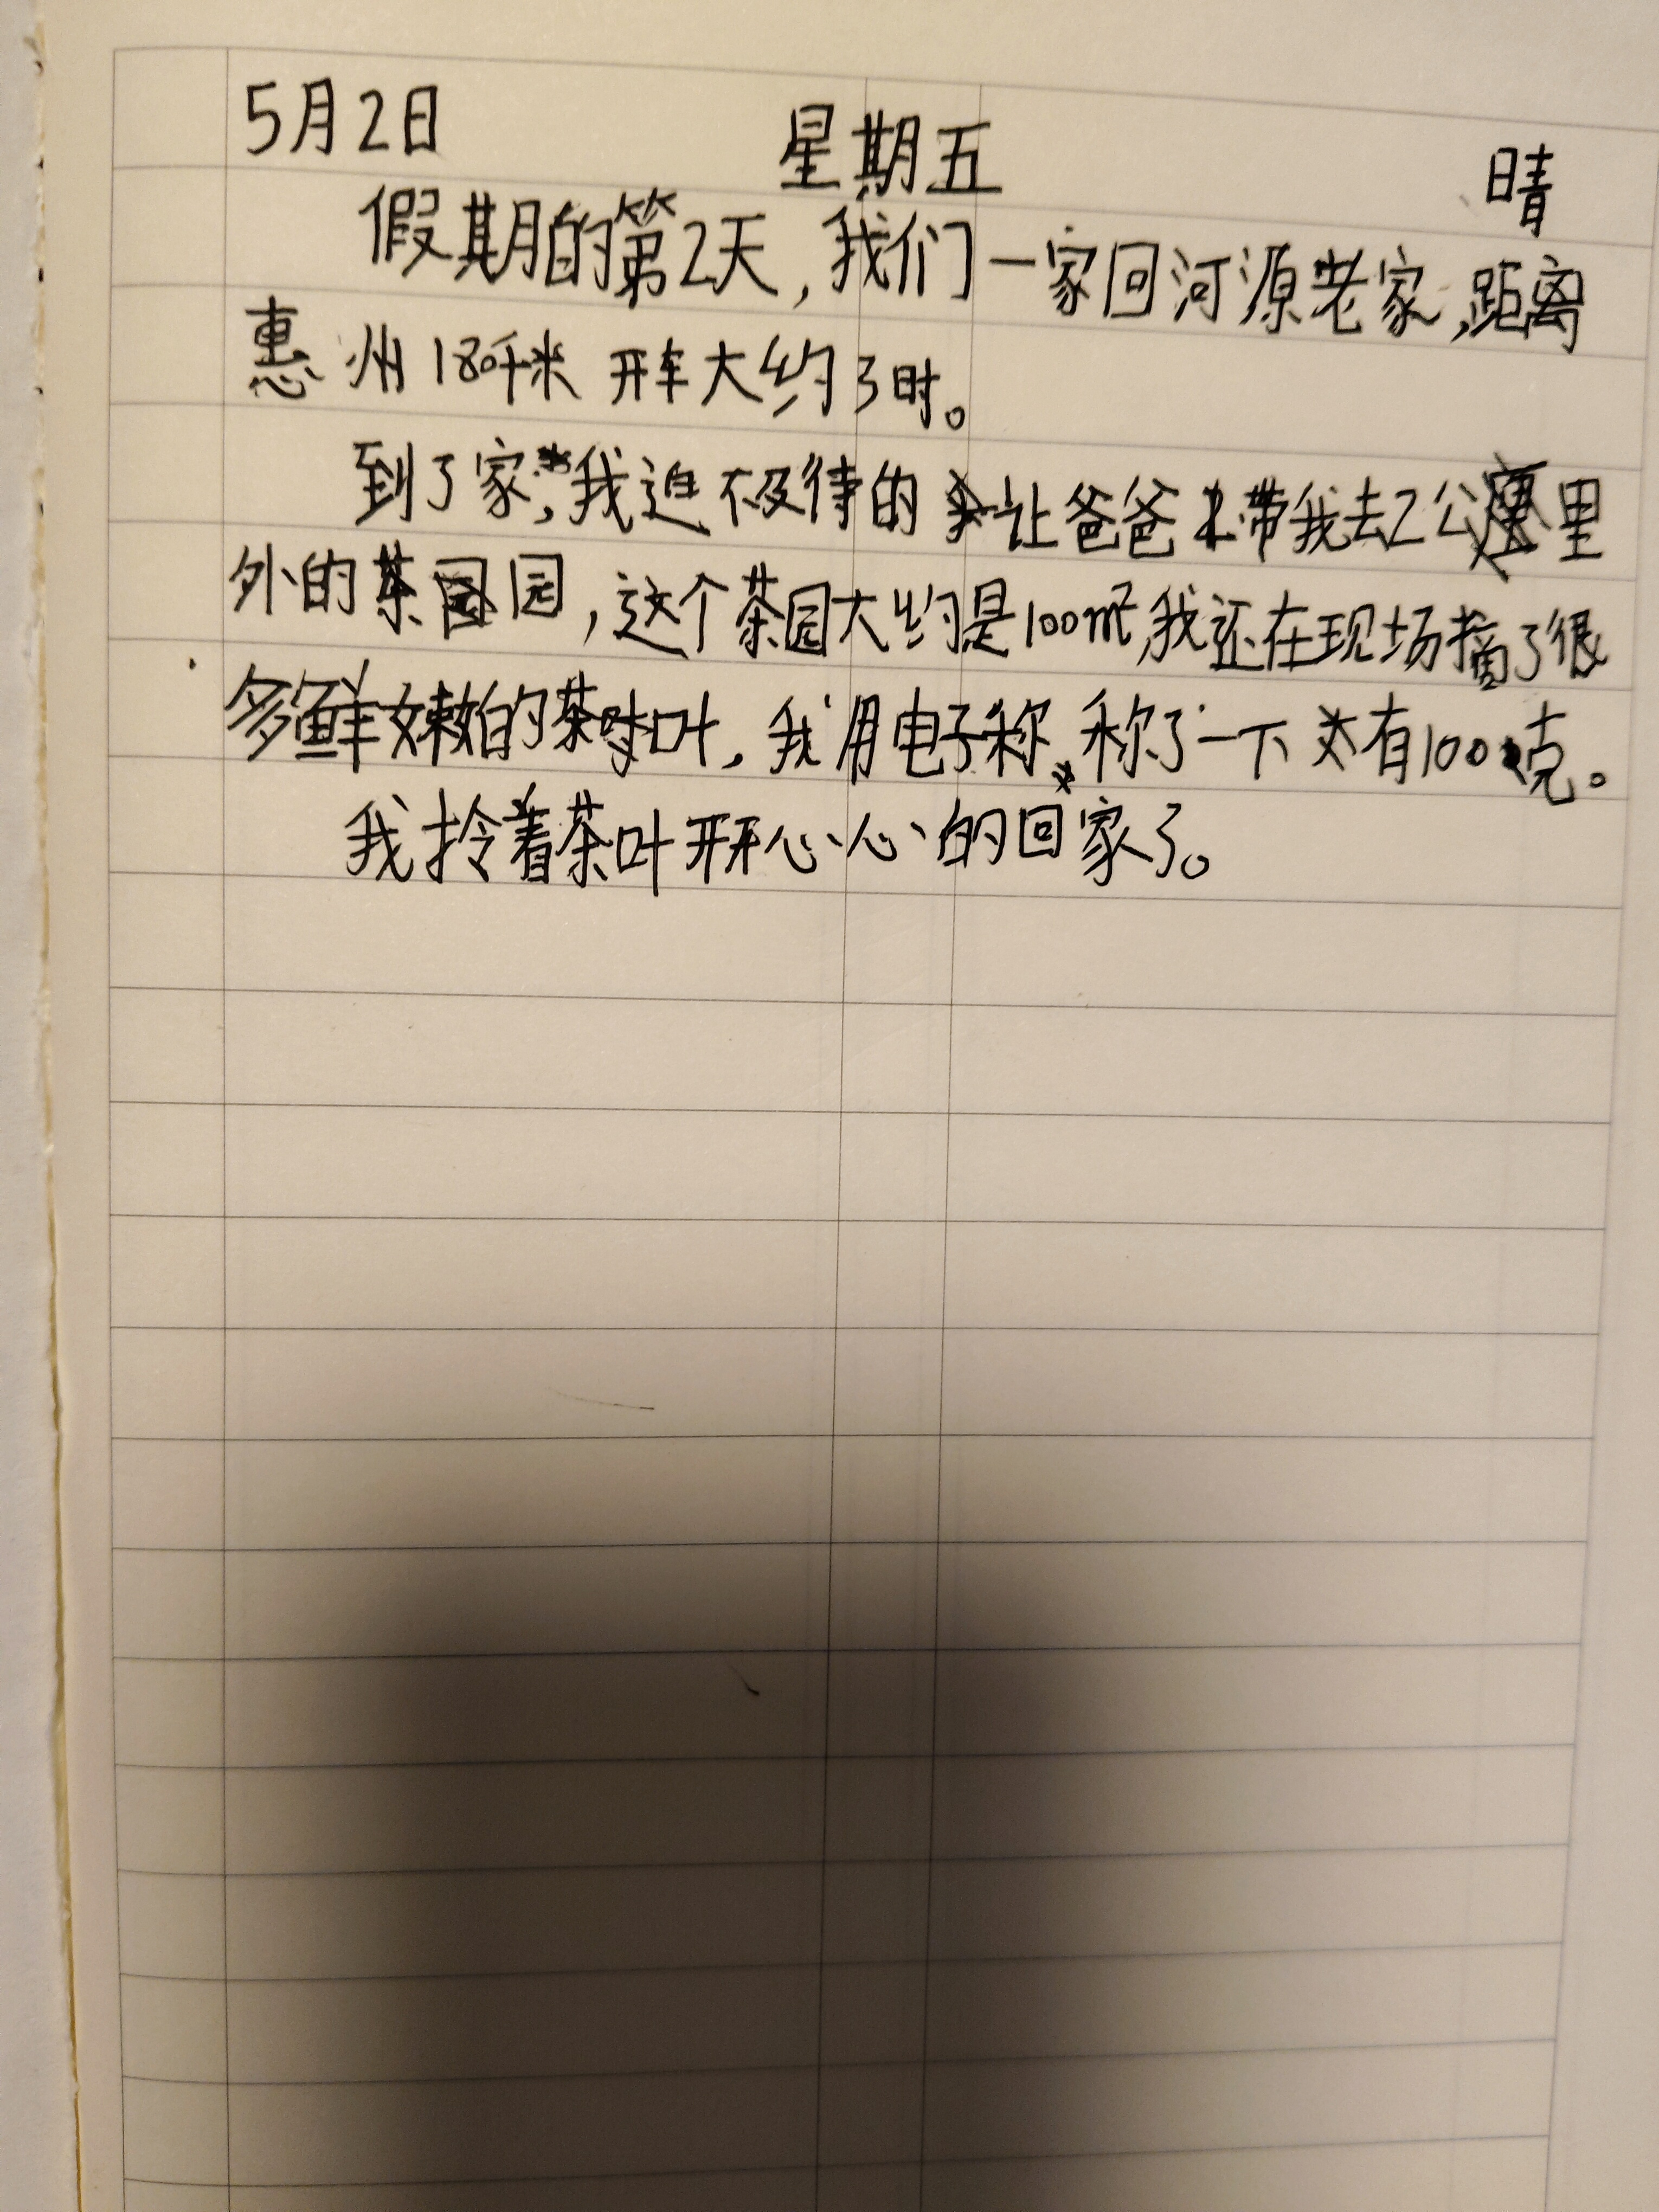 5月2日 星期五 晴
假期的第2天,我们一家回河源老家,距离
惠州180千米 开车大约3时。
到了家,我迫不及待的让爸爸带我去2公里
外的茶园,这个茶园大约是100m²,我还在现场摘了很
多鲜嫩的茶叶,我用电子称,称了一下 有100克。
我拎着茶叶开开心心的回家了。